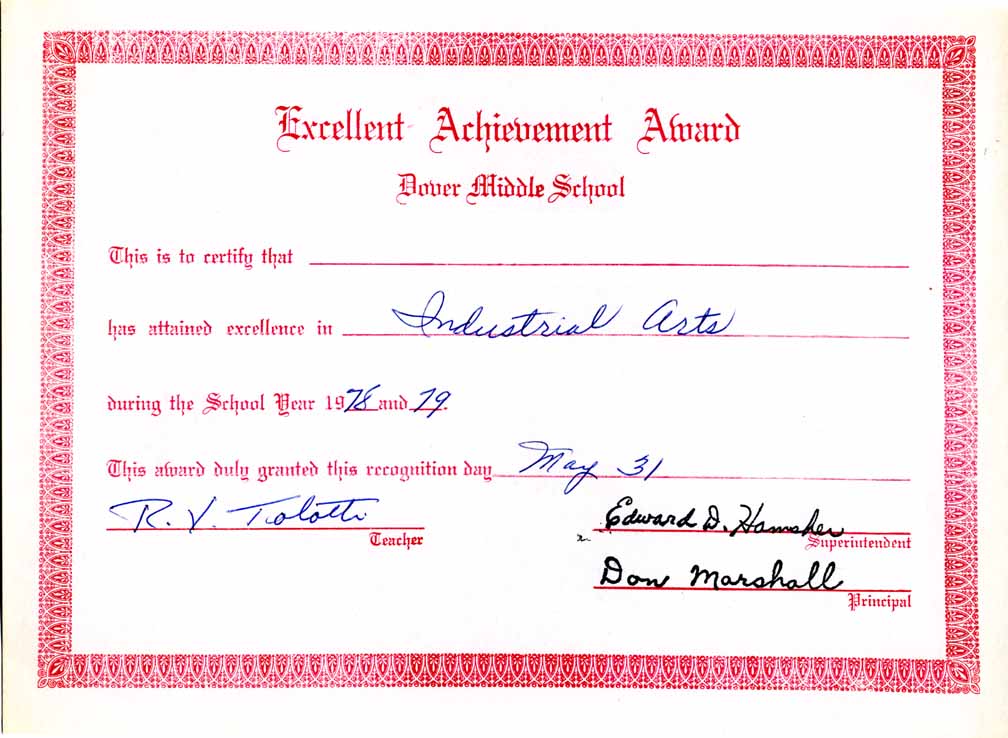 Excellent Achievement Award
Dover Middle School
This is to certify that
has attained excellence in Industrial Arts
during the School Year 1978 and 79.
This award duly granted this recognition day May 31
R. V. Tolotti
Teacher
Edward D. Hamsher
Superintendent
Don Marshall
Principal